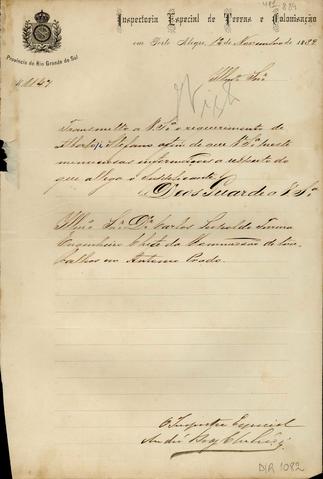 Inspectoria Especial de Terras e Colonisação
em Porto Alegre, 12 de Novembro de 1889
Provincia do Rio Grande do Sul
N. 1147
Illmo Snr.
Transmitto a V. Sª o requerimento de
Alberto Stefano afim de que V. Sª preste
minuciosas informações a respeito do
que allega o supplicante.
Deos Guarde a V. Sª
Illmo Snr. Dr. Carlos Leopoldo
Engenheiro Chefe da Commissão de Tra-
balhos em Antonio Prado.
O Inspector Especial
DIR 1082